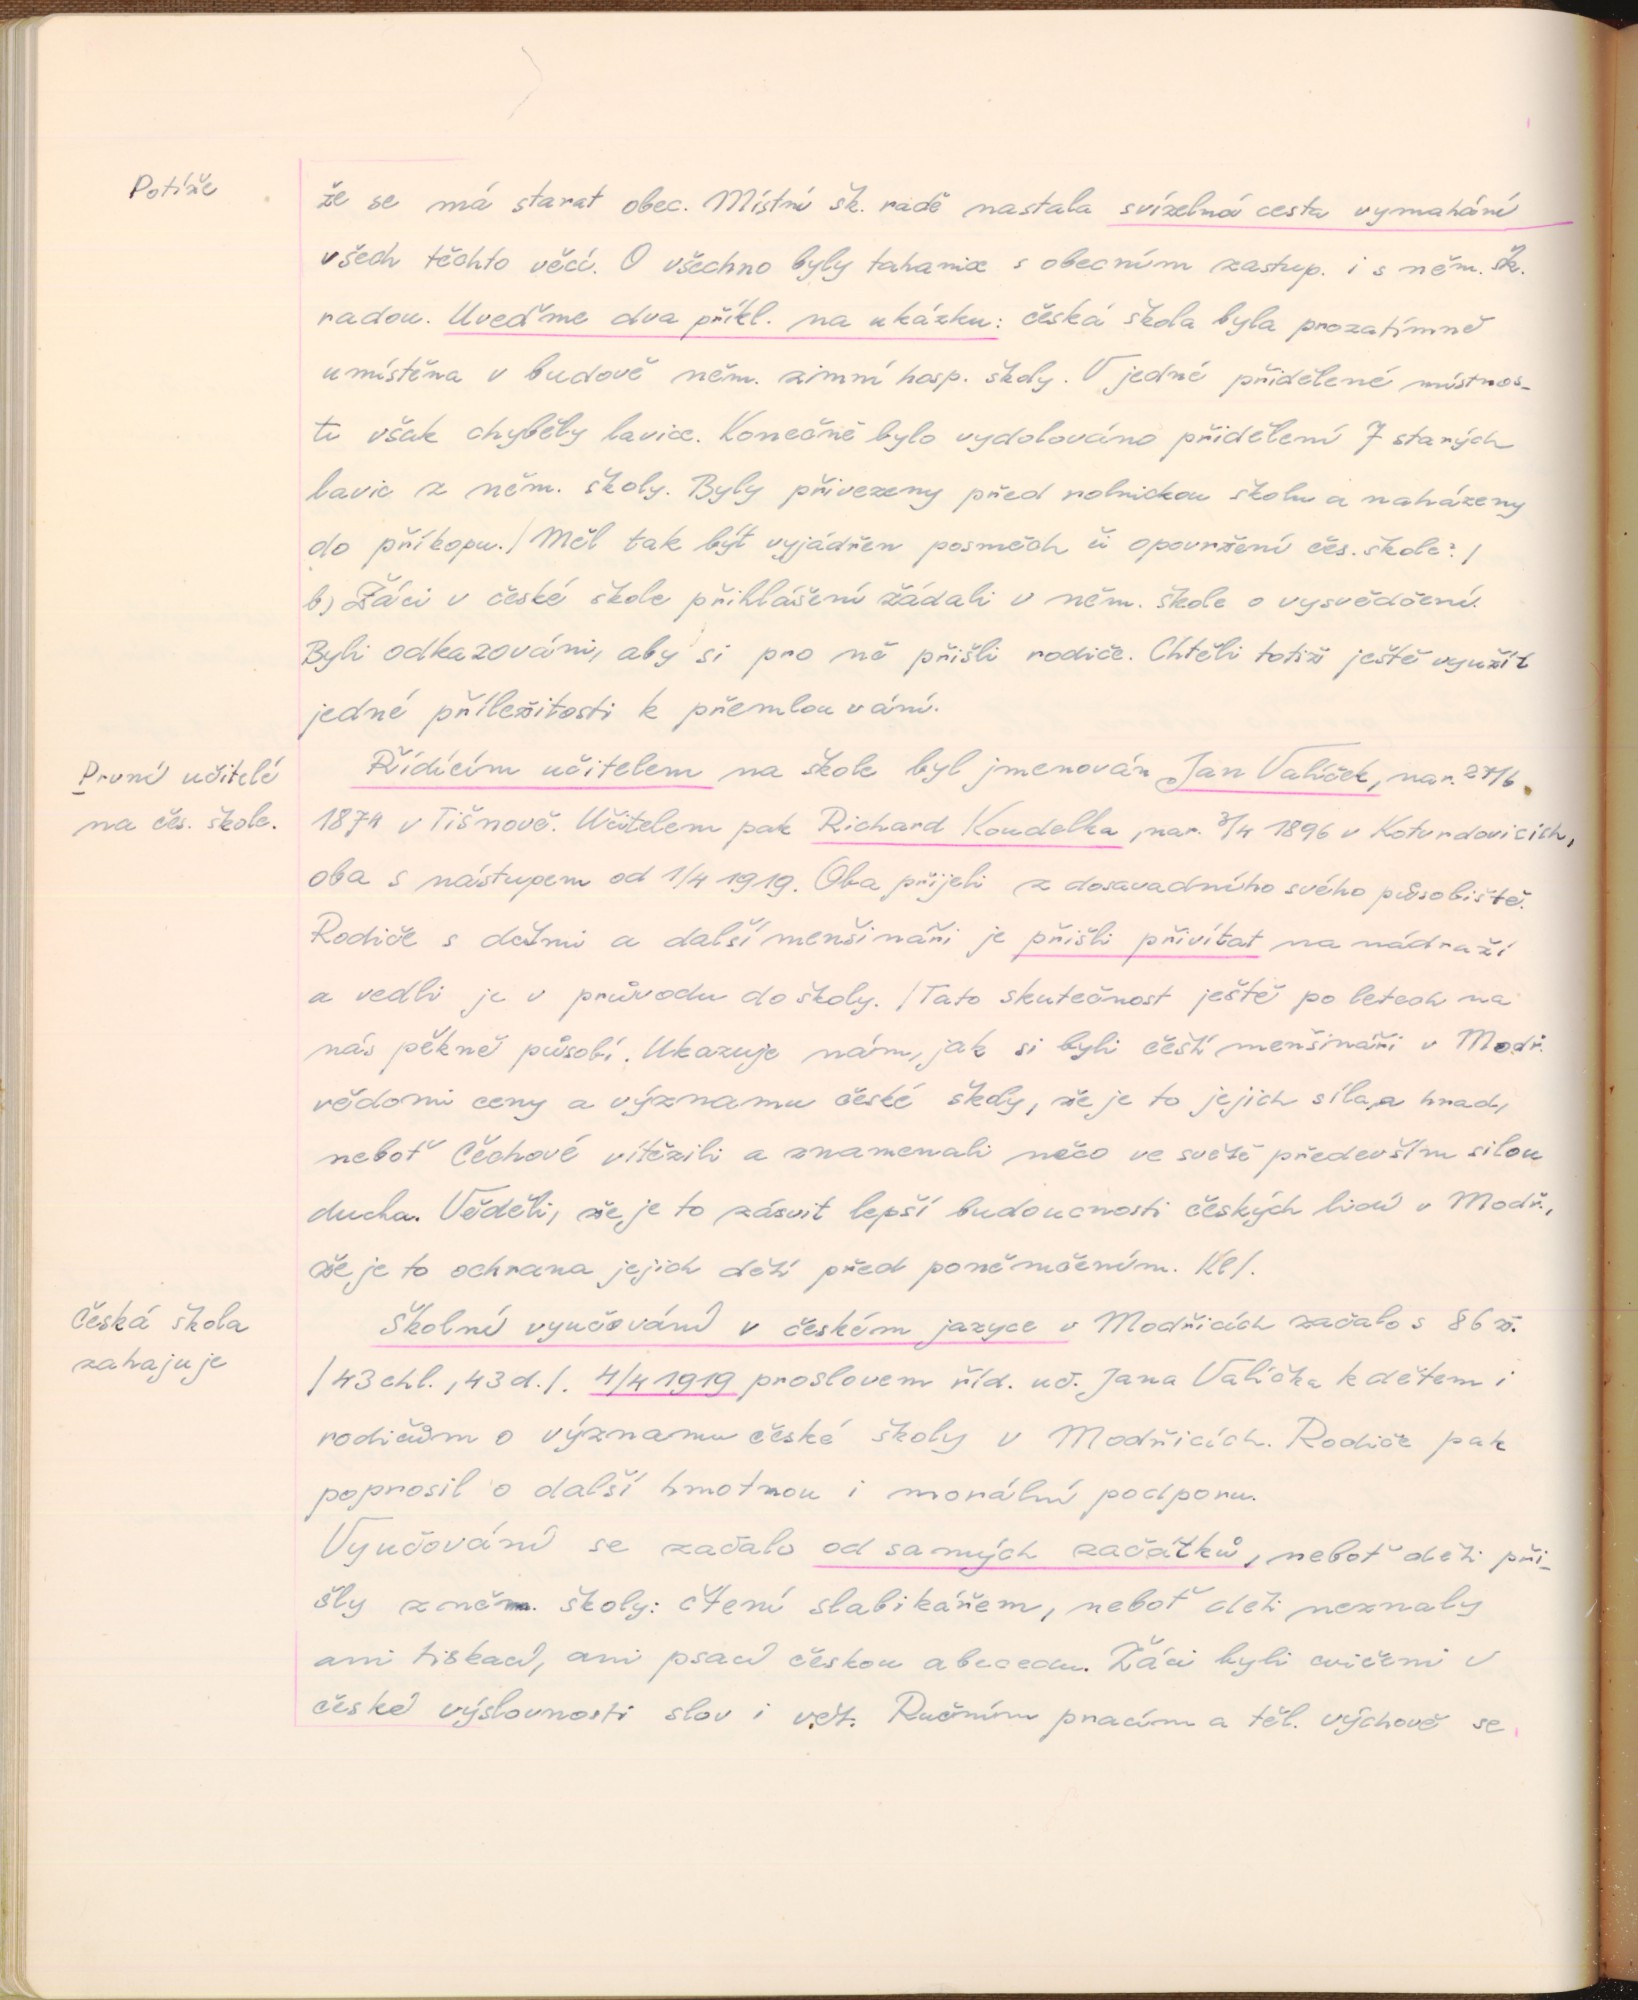 Potíže
že se má starat obec. Místní šk. radě nastala svízelná cesta vymahání
všech těchto věcí. O všechno byly tahanice s obecním zastup. i s něm. šk.
radou. Uveďme dva příkl. na ukázku: česká škola byla prozatímně
umístěna v budově něm. zimní hosp. školy. V jedné přidělené místnos-
ti však chyběly lavice. Konečně bylo vydolováno přidělení 7 starých
lavic z něm. školy. Byly přivezeny před rolnickou školu a naházeny
do příkopu. / Měl tak být vyjádřen posměch či opovržení čes. škole? /
b) Žáci v české škole přihlášení žádali v něm. škole o vysvědčení.
Byli odkazováni, aby si pro ně přišli rodiče. Chtěli totiž ještě využít
jedné příležitosti k přemlouvání.
První učitelé
na čes. škole.
Řídícím učitelem na škole byl jmenován Jan Valíček, nar. 27/6
1874 v Tišnově. Učitelem pak Richard Koudelka, nar. 3/4 1896 v Kotvrdovicích,
oba s nástupem od 1/4 1919. Oba přijeli z dosavadního svého působiště.
Rodiče s dětmi a další menšináři je přišli přivítat na nádraží
a vedli je v průvodu do školy. /Tato skutečnost ještě po letech na
nás pěkně působí. Ukazuje nám, jak si byli čeští menšináři v Modř.
vědomi ceny a významu české školy, že je to jejich síla, a hrad,
neboť Čechové vítězili a znamenali něco ve světě především silou
ducha. Věděli, že je to zásvit lepší budoucnosti českých lidí v Modř.,
že je to ochrana jejich dětí před poněmčením. Kl/.
Česká škola
zahajuje
Školní vyučování v českém jazyce v Modřicích začalo s 86 ž.
/43 chl., 43 d./. 4/4 1919 proslovem říd. uč. Jana Valíčka k dětem i
rodičům o významu české školy v Modřicích. Rodiče pak
poprosil o další hmotnou i morální podporu.
Vyučování se začalo od samých začátků, neboť děti při-
šly z něm. školy: čtení slabikářem, neboť děti neznaly
ani tiskací, ani psací českou abecedu. Žáci byli cvičeni v
české výslovnosti slov i vět. Ručním pracím a těl. výchově se